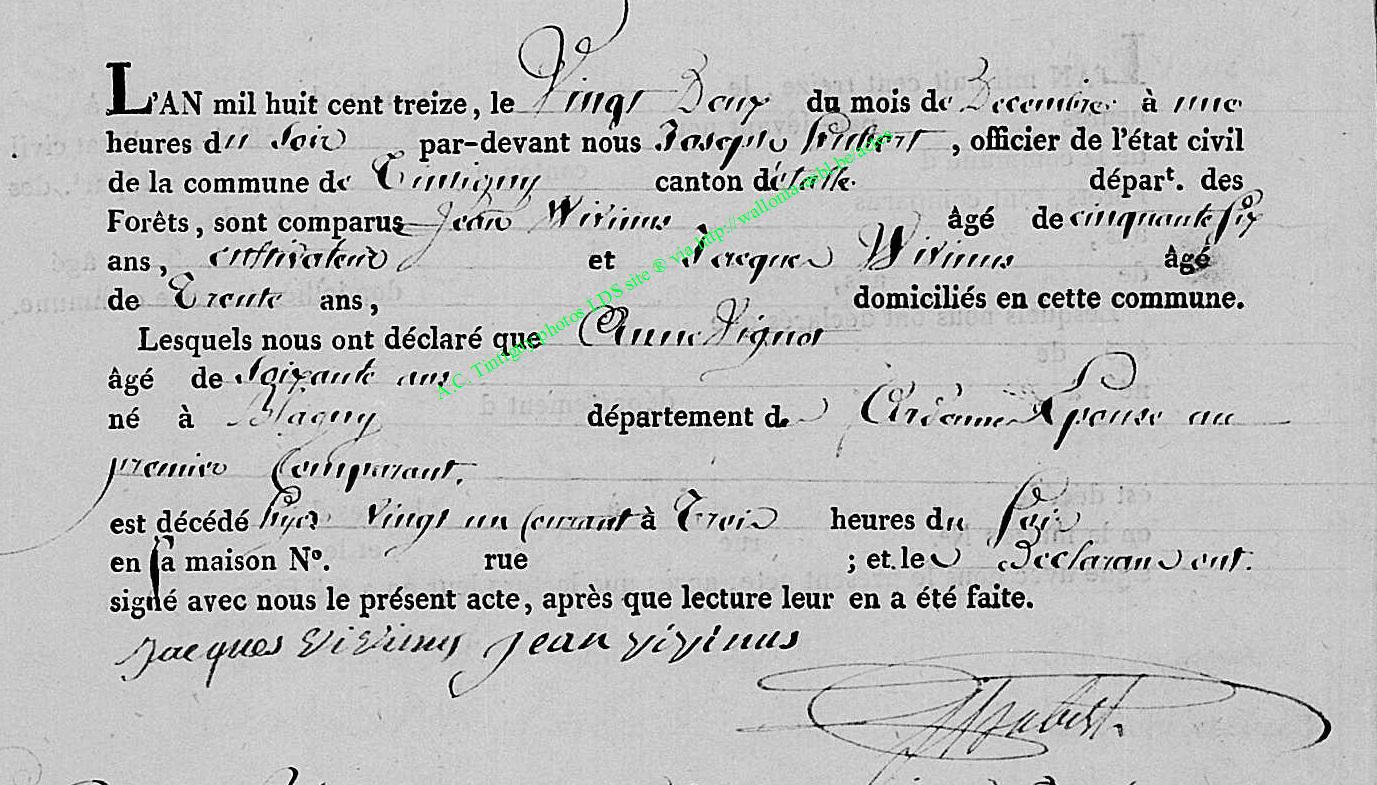 L'AN mil huit cent treize, le Vingt Deux du mois de Decembre à une
heures du Soir par-devant nous Joseph hubert, officier de l'état civil
de la commune de Tintigny canton d'étalle. départ. des
Forêts, sont comparus Jean Wivinus âgé de cinquante six
ans, cultivateur et Jacques Wivinus âgé
de Trente ans, domiciliés en cette commune.
Lesquels nous ont déclaré que Anne Pignot
âgé de Soixante ans
né à Blagny département de Ardennes Epouse au
premier Comparant.
est décédé hyer Vingt un Courant à Trois heures du Soir
en sa maison N°. rue ; et les Declarans ont
signé avec nous le présent acte, après que lecture leur en a été faite.
Jacques ViVinus Jean viVinus
JHubert
A.C. Tintigny photos LDS site ® via http://wallonia-asbl.be/actes